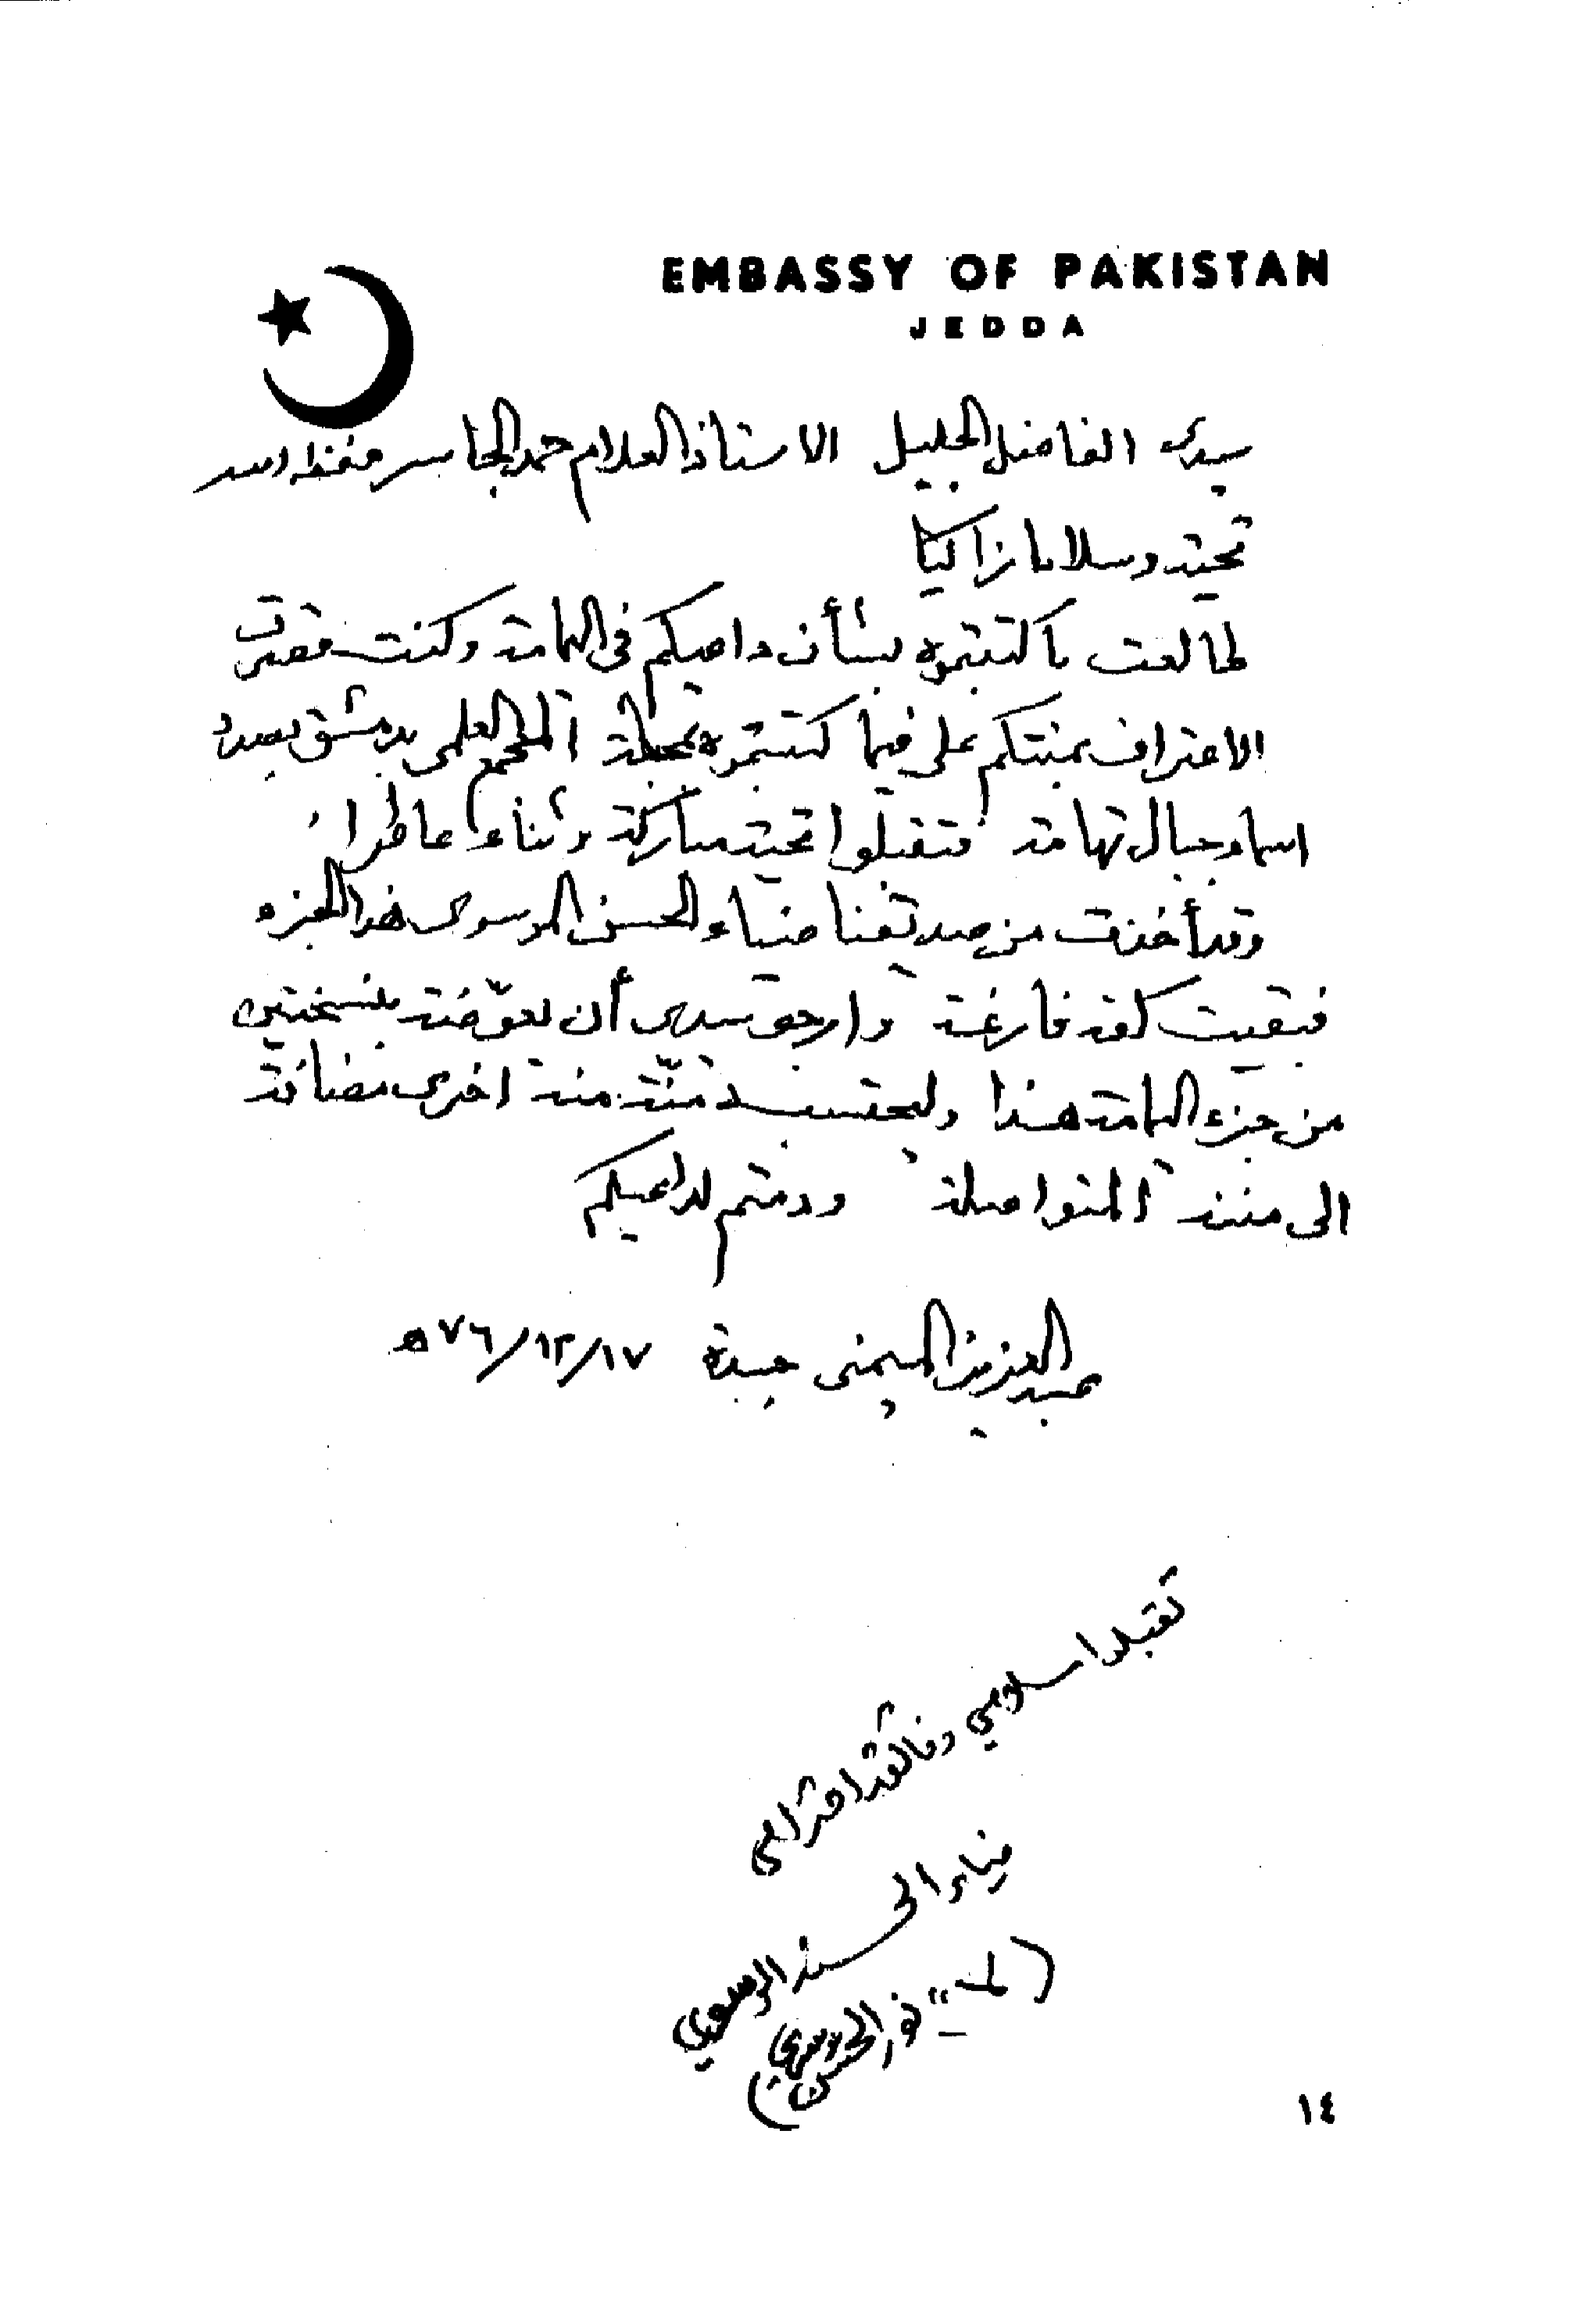 EMBASSY OF PAKISTAN
JEDDA
سيدى الفاضل الجليل الاستاذ العلام حمد الجاسر حفظه الله
تحية وسلاما زاكيا
طالعت ما كتبتموه بشأن داعيكم فى اليمامة وكنت قصرت
الاعتراف بمنتكم على فيما كتبتموه بمجلة المجمع العلمى بدمشق بصدد
اسماء جبال تهامة فتقبلوا تحية مباركة وثناء عاطرا
وقد أخذت من صديقنا ضياء الحسن الموسوى هذا الجزء
فبقيت كفه فارغة وارجو سيدى أن يعوّضه بنسختين
من جزء اليمامة هذا وليحتسبه منّة منه اخرى مضافة
الى مننه المتواصلة ودمتم لداعيكم
عبد العزيز الميمنى جدة ١٧/١٢/٧٦ھ
تقبلوا سلامي وفائقة احترامي
ضياء الحسن الموسوي
نور الحسن
١٤